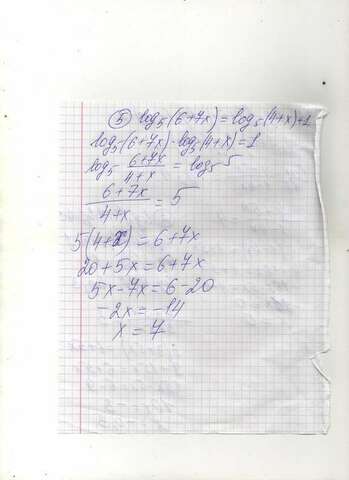 ⑤ log₅(6+7x)=log₅(4+x)+1
log₅(6+7x)-log₅(4+x)=1
log₅ (6+7x)/(4+x) = log₅ 5
(6+7x)/(4+x) = 5
5(4+x)=6+7x
20+5x=6+7x
5x-7x=6-20
-2x=-14
x=7